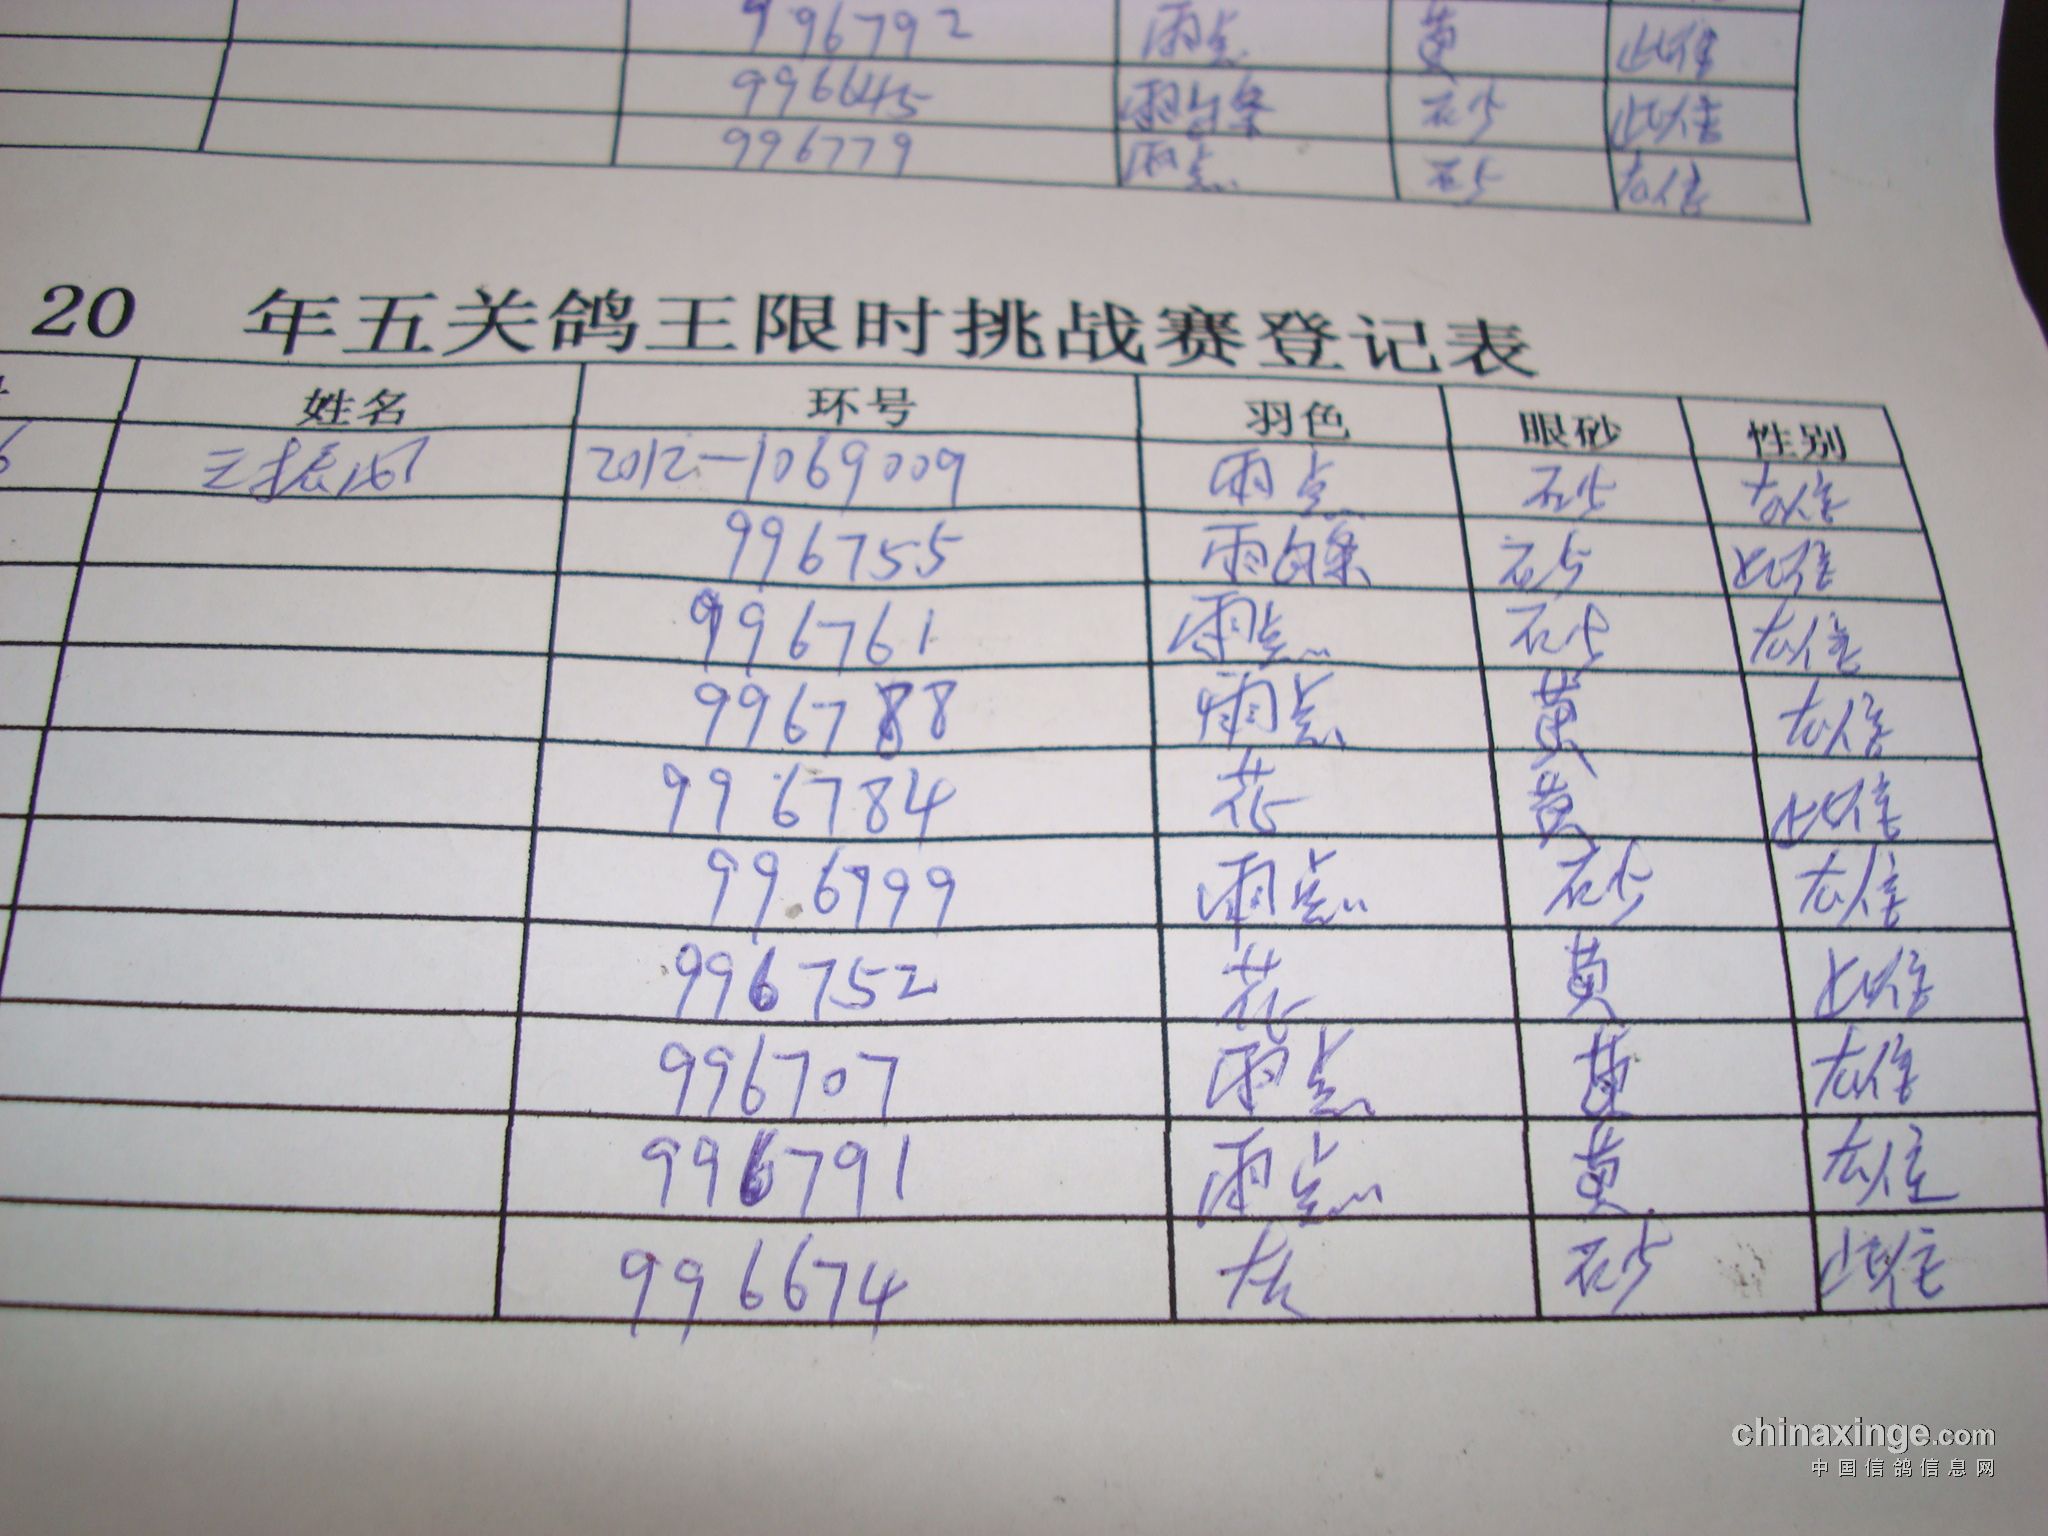 996792 雨点 黄 雌
996645 雨白条 砂 雌
996779 雨点 砂 雄
20 年五关鸽王限时挑战赛登记表
姓名 环号 羽色 眼砂 性别
6 2012-1069009 雨点 砂 雄
996755 雨白条 砂 雌
996761 雨点 砂 雄
996788 雨点 黄 雄
996784 花 黄 雌
996799 雨点 砂 雄
996752 花 黄 雌
996707 雨点 黄 雄
996791 雨点 黄 雄
996674 灰 砂 雌
chinaxinge.com
中国信鸽信息网